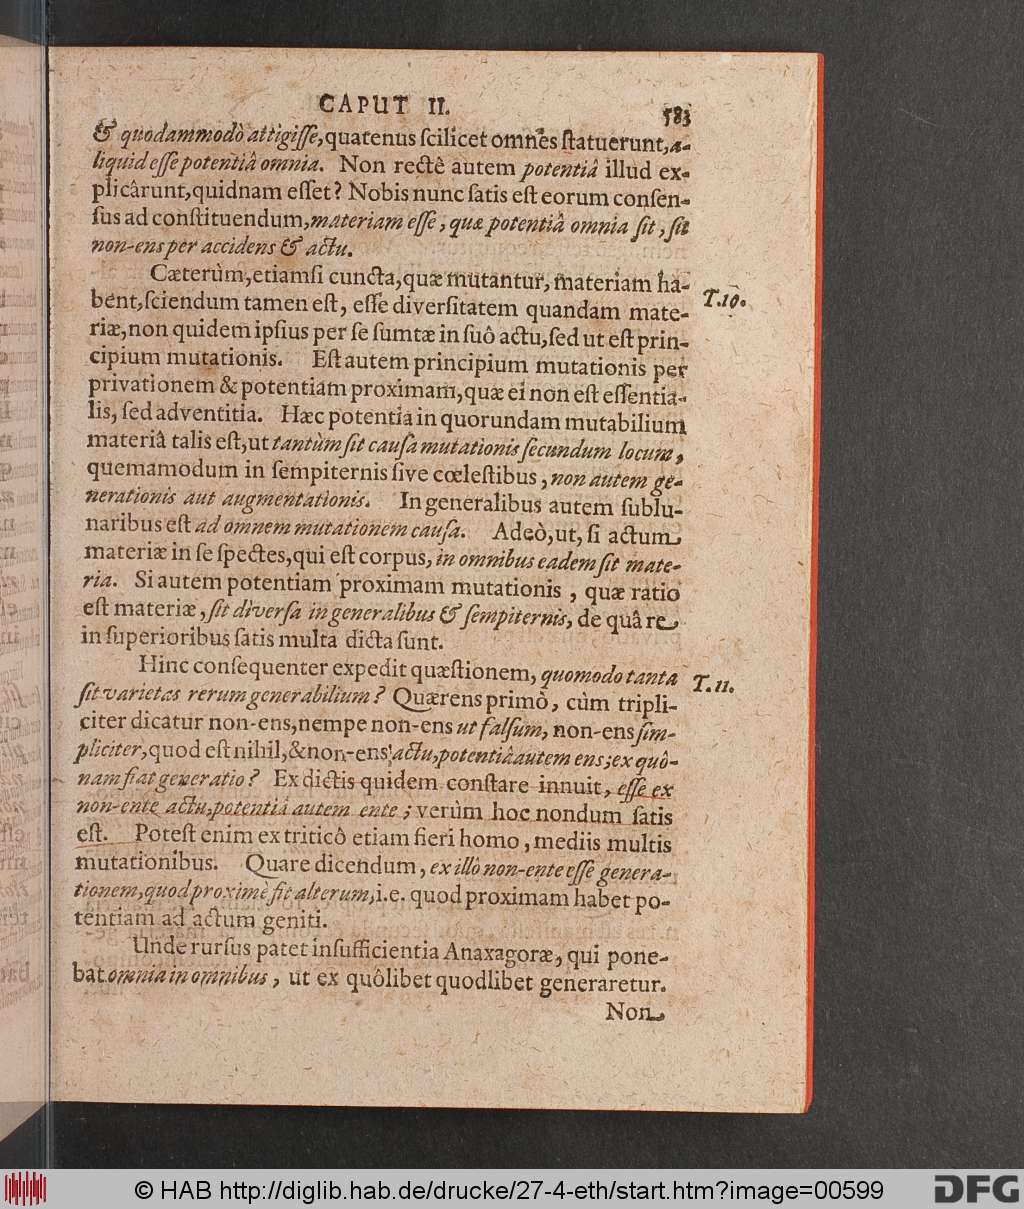 CAPUT II. 583
& quodammodò attigiſſe, quatenus ſcilicet omnes ſtatuerunt, a-
liquid eſſe potentiâ omnia. Non rectè autem potentiâ illud ex-
plicârunt, quidnam eſſet? Nobis nunc ſatis eſt eorum conſen-
ſus ad conſtituendum, materiam eſſe, quæ potentiâ omnia ſit, ſit
non-ens per accidens & actu.
Cæterùm, etiamſi cuncta, quæ mutantur, materiam ha-
bent, ſciendum tamen eſt, eſſe diverſitatem quandam mate-
T. 10.
riæ, non quidem ipſius per ſe ſumtæ in ſuô actu, ſed ut eſt prin-
cipium mutationis. Eſt autem principium mutationis per
privationem & potentiam proximam, quæ ei non eſt eſſentia-
lis, ſed adventitia. Hæc potentia in quorundam mutabilium
materiâ talis eſt, ut tantùm ſit cauſa mutationis ſecundum locum,
quemamodum in ſempiternis ſive cœleſtibus, non autem ge-
nerationis aut augmentationis. In generalibus autem ſublu-
naribus eſt ad omnem mutationem cauſa. Adeò, ut, ſi actum
materiæ in ſe ſpectes, qui eſt corpus, in omnibus eadem ſit mate-
ria. Si autem potentiam proximam mutationis, quæ ratio
eſt materiæ, ſit diverſa in generalibus & ſempiternis, de quâ re
in ſuperioribus ſatis multa dicta ſunt.
Hinc conſequenter expedit quæſtionem, quomodo tanta
T. 11.
ſit varietas rerum generabilium? Quærens primò, cùm tripli-
citer dicatur non-ens, nempe non-ens ut falſum, non-ens ſim-
pliciter, quod eſt nihil, & non-ens actu, potentiâ autem ens; ex quô-
nam fiat generatio? Ex dictis quidem conſtare innuit, eſſe ex
non-ente actu, potentiâ autem ente; verùm hoc nondum ſatis
eſt. Poteſt enim ex triticô etiam fieri homo, mediis multis
mutationibus. Quare dicendum, ex illô non-ente eſſe genera-
tionem, quod proximè fit alterum, i.e. quod proximam habet po-
tentiam ad actum geniti.
Unde rurſus patet inſufficientia Anaxagoræ, qui pone-
bat omnia in omnibus, ut ex quôlibet quodlibet generaretur.
Non
© HAB http://diglib.hab.de/drucke/27-4-eth/start.htm?image=00599
DFG